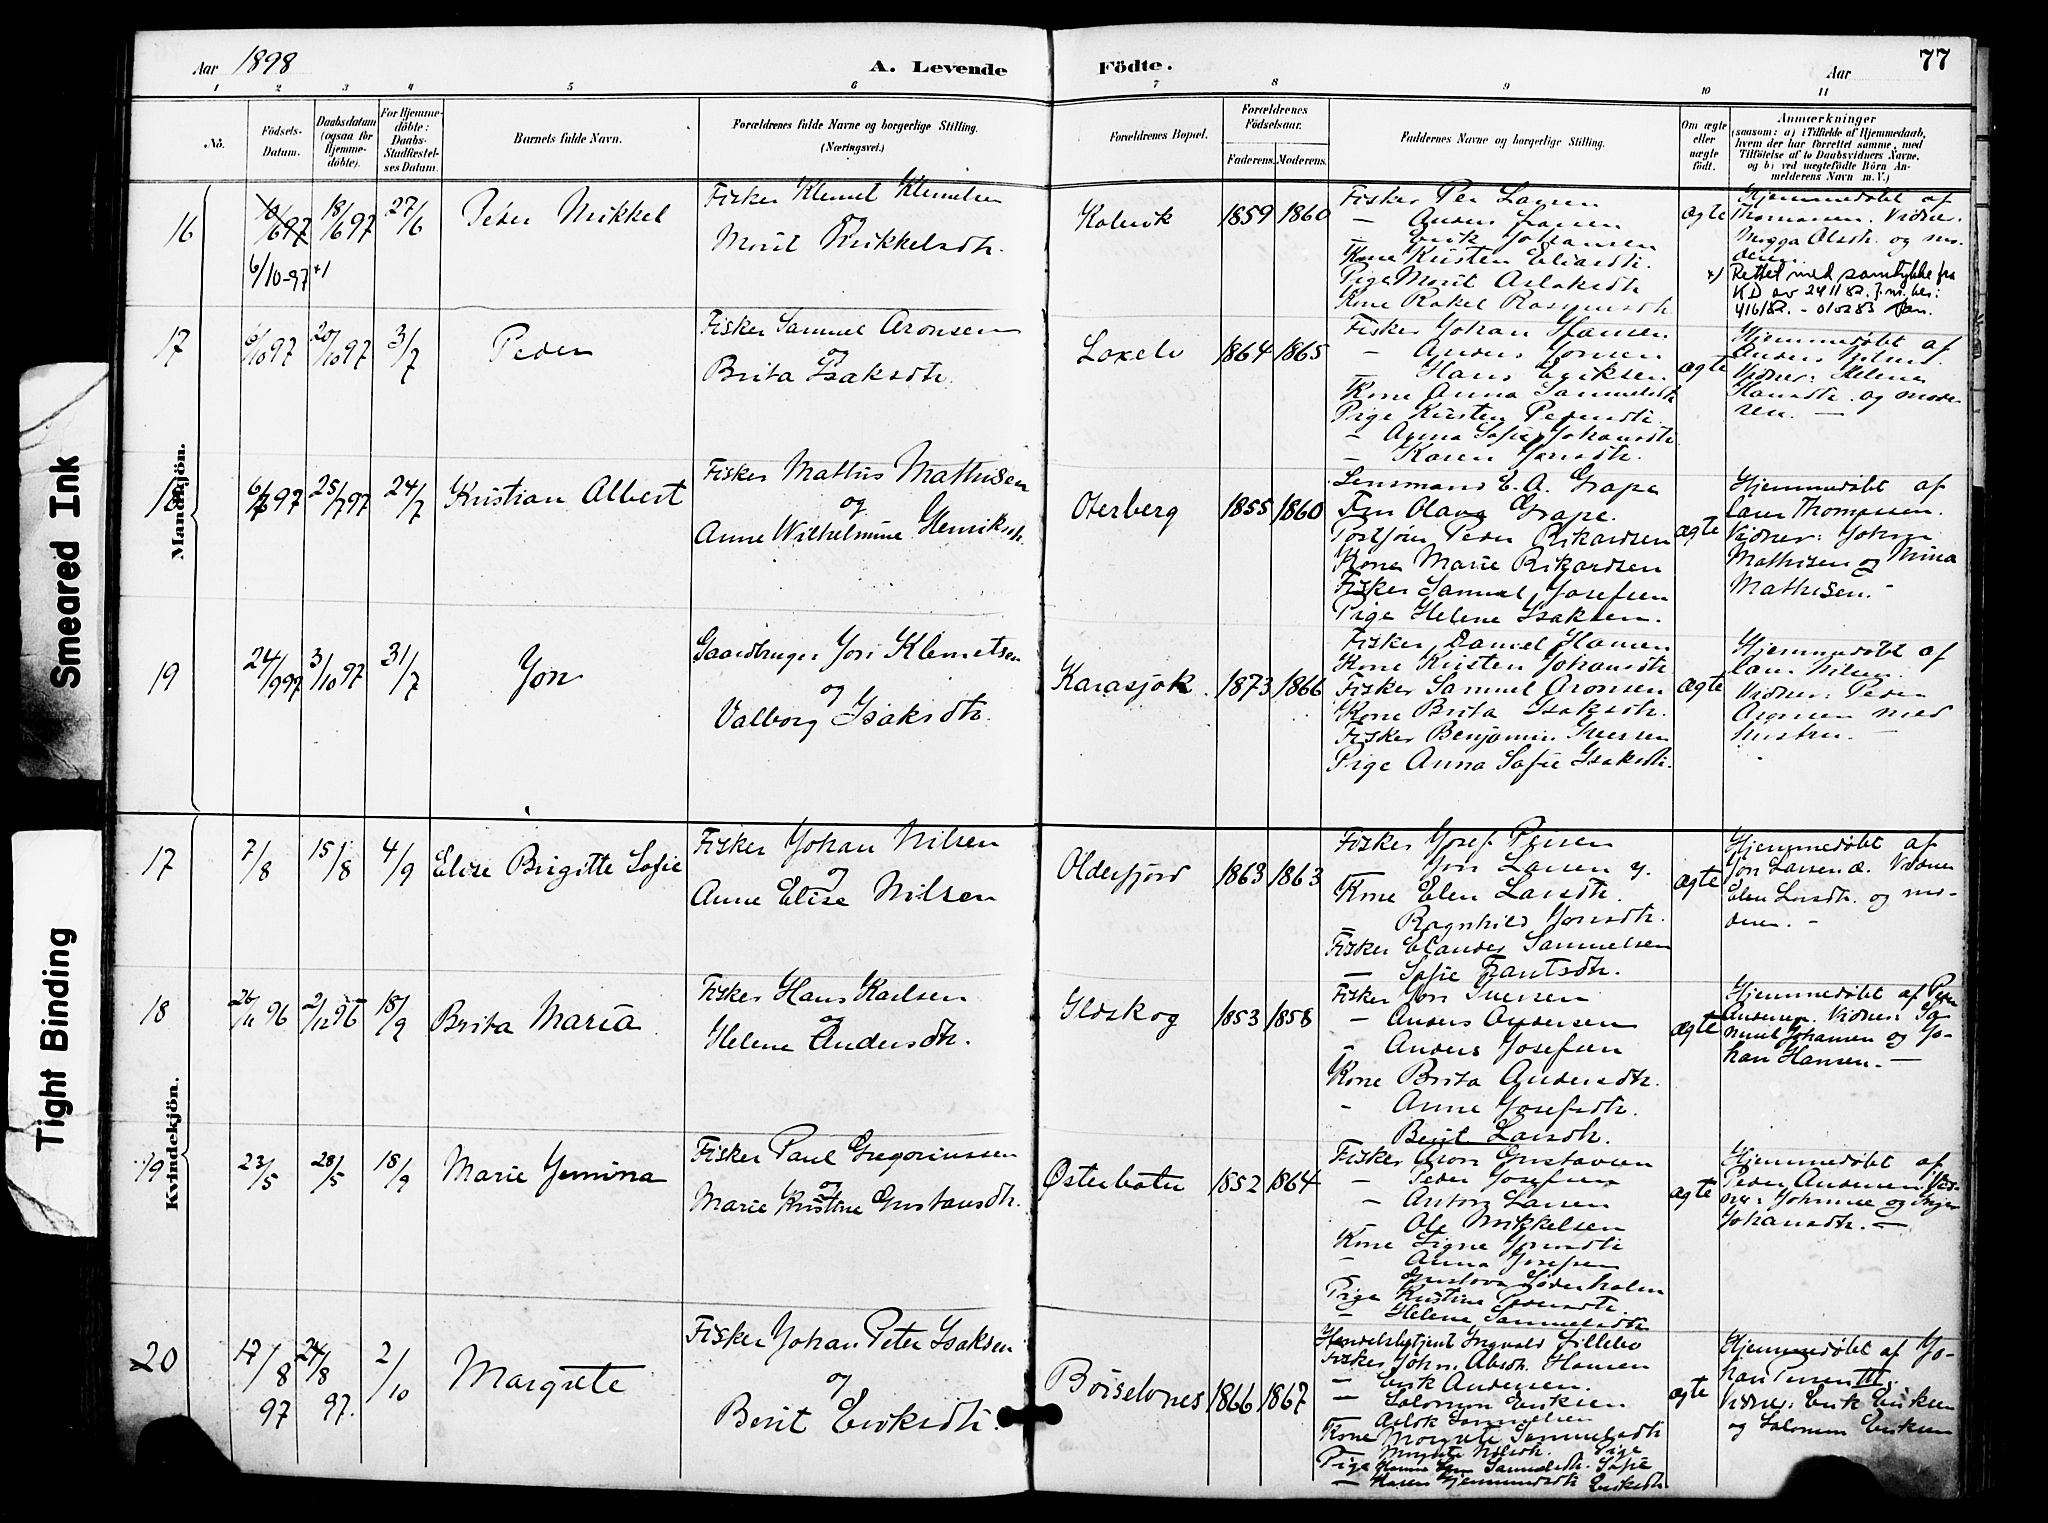 Smeared Ink
Tight Binding
Aar 1898
A. Levende Födte.
Aar
77
1 2 3 4 5 6 7 8 9 10 11
No.
Födsels-
Datum.
Daabsdatum
(ogsaa for
Hjemme-
döbte).
For Hjemme-
döbte:
Daabs-
Stadfæstel-
ses Datum.
Barnets fulde Navn.
Forældrenes fulde Navne og borgerlige Stilling.
(Næringsvei.)
Forældrenes Bopæl.
Forældrenes
Födselsaar.
Faderens. Moderens.
Faddernes Navne og borgerlige Stilling.
Om ægte
eller
uægte
födt.
Anmærkninger
(saasom: a) i Tilfælde af Hjemmedaab,
hvem der har forrettet samme, med
Tilföielse af to Daabsvidners Navne.
og b) ved uægtefödte Börn An-
melderens Navn m. V.)
Mandkjön.
16
10/6 97
6/10-97 x)
18/6 97
27/6
Peder Mikkel
Fisker Klemet Klemetsen
og
Marit Mikkelsdtr.
Kolvik
1859
1860
Fisker Per Larsen
— Anders Larsen
— Erik Johansen
Kone Kirsten Eliasdtr.
Pige Marit Aslaksdtr
Kone Rakel Rasmusdtr.
ægte
Hjemmedøbt af
Thomassen. Vidner:
Magga Olsdtr. og mo-
deren.
x) Rettet med samtykke fra
KD av 241182. J.nr. ber:
416/82. - 010283
17
6/10 97
20/10 97
3/7
Peder
Fisker Samuel Aronsen
og
Brita Isaksdtr.
Laxelv
1864
1865
Fisker Johan Hansen
— Anders Jonsen
— Hans Eriksen
Kone Anna Samuelsdtr
Pige Kirsten Pedersdtr.
— Anna Sofie Johansdtr.
— Karen Jonsdtr.
ægte
Hjemmedøbt af
Anders
Vidner: Helene
Hansdtr. og mode-
ren. —
18
6/7 97
25/7 97
24/7
Kristian Albert
Fisker Mathis Mathisen
og
Anne Wilhelmine Henriksdtr.
Oterberg
1855
1860
Lensmand E. A. Grape
Fru Olava Grape.
Peder Rikardsen
Kone Marie Rikardsen
Fisker Samuel Josefsen
Pige Helene Isaksen.
ægte
Hjemmedøbt af
Lars Thomassen.
Vidner: Johan
Mathisen og Mina
Mathisen. —
19
24/9 97
3/10 97
31/7
Jon
Gaardbruger Jon Klemetsen
og
Valborg Isaksdtr.
Karasjok.
1873
1866
Fisker Daniel Hansen
Kone Kirsten Johansdtr
Fisker Samuel Aronsen
Kone Brita Isaksdtr.
Fisker Benjamin Iversen
Pige Anna Sofie Isaksdtr.
ægte
Hjemmedøbt af
Lars Nilsen.
Vidner: Peder
Aronsen med
hustru. —
Kvindekjön.
17
7/8
15/8
4/9
Elise Brigitte Sofie
Fisker Johan Nilsen
og
Anne Elise Nilsen
Olderfjord
1863
1863
Fisker Josef Persen
Jon Larsen y.
Kone Elen Larsdtr.
Ragnhild Jonsdtr.
Fisker Elander Samuelsen
— Sofie Frantsdtr.
ægte
Hjemmedøbt af
Jon Larsen æ. Vidner
Elen Larsdtr. og mo-
deren. —
18
26/11 96
2/12 96
18/9
Brita Maria
Fisker Hans Karlsen
og
Helene Andersdtr.
Ildskog
1853
1858
Fisker Jon Iversen
— Anders Andersen
— Anders Josefsen
Kone Brita Andersdtr.
— Anne Josefsdtr.
Berit Larsdtr.
ægte
Hjemmedøbt af Peder
Andersen. Vidner: Sa-
muel Johansen og Jo-
han Hansen. —
19
23/5
28/5
18/9
Marie Jemina
Fisker Paul Gregoriussen
og
Marie Kristine Gustavsdtr.
Østerbotn
1852
1864
Fisker Aron Gustavsen
— Peder Josefsen
— Anton Larsen
— Ole Mikkelsen
Kone Signe Jonsdtr
— Anna Josefsen
Gustava Söderholm
Pige Kristine Pedersdtr.
— Helene Samuelsdtr
ægte
Hjemmedøbt af
Peder Andersen. Vid-
ner: Johanne og Inger
Johansdtr. —
20
17/8 97
24/8 97.
2/10
Margrete
Fisker Johan Peter Isaksen
og
Berit Eriksdtr.
Börselvnes
1866
1867
Handelsbetjent Ingvald Lillebo
Fisker John Abrah. Hansen
— Erik Andersen.
— Salomon Eriksen
Aslak Samuelsen
Kone Margrete Samuelsdtr
Margrete Nilsdtr. Pige
Pige Hanna Samuelsdtr. Sofie
— Karen Hjemmundsdtr Eriksdtr
ægte
Hjemmedøbt af Jo-
han Persen III.
Vidner: Erik Eriksen
og Salomon Eriksen